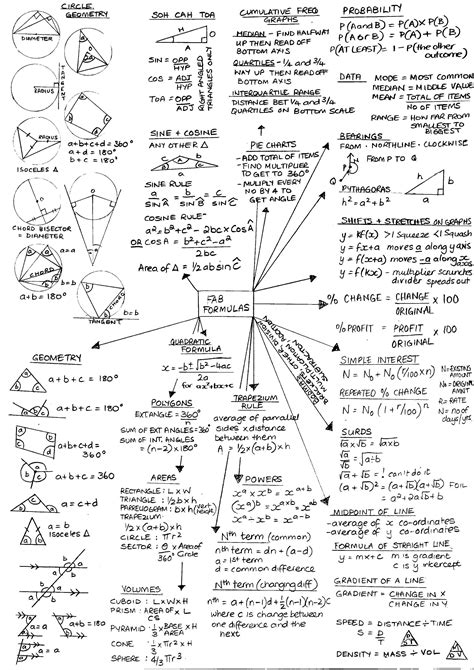 CIRCLE GEOMETRY
DIAMETER
TANGENT
RADIUS
RADIUS
ISOCELES Δ
a+b+c+d=360°
a+d = 180°
b+c = 180°
CHORD BISECTOR
= DIAMETER
a=a
CHORD
a=a
a+b=180°
b=b
TANGENT
SOH CAH TOA
H
O
A
SIN = OPP
HYP
COS = ADJ
HYP
TOA = OPP
ADJ
RIGHT ANGLED
TRIANGLES ONLY
SINE + COSINE
ANY OTHER Δ
SINE RULE
a/sin Â = b/sin B̂ = c/sin Ĉ
COSINE RULE
a² = b²+c² - 2bc × Cos Â
OR COS A = b²+c²-a²
2bc
Area of Δ = 1/2 ab sin Ĉ
CUMULATIVE FREQ
GRAPHS
MEDIAN - FIND HALFWAY
UP THEN READ OFF
BOTTOM AXIS
QUARTILES - 1/4 and 3/4
WAY UP THEN READ OFF
BOTTOM AXIS
INTERQUARTILE RANGE
DISTANCE BET 1/4 and 3/4
QUARTILES ON BOTTOM SCALE
PIE CHARTS
- ADD TOTAL OF ITEMS
- FIND MULTIPLIER
TO GET TO 360°
- MULIPLY EVERY
NO BY 4 TO
GET ANGLE
PROBABILITY
P(A and B) = P(A) × P(B)
P(A or B) = P(A) + P(B)
P(AT LEAST) = 1 - P(the other
outcome)
DATA
MODE = MOST COMMON
MEDIAN = MIDDLE VALUE
MEAN = TOTAL OF ITEMS
NO OF ITEMS
RANGE = HOW FAR FROM
SMALLEST TO
BIGGEST
BEARINGS
FROM · NORTHLINE · CLOCKWISE
FROM P TO Q
P
Q
PYTHAGORAS
h² = a² + b²
h
b
a
SHIFTS + STRETCHES ON GRAPHS
y = kf(x) >1 squeeze <1 Squash
y = fx + a moves a along y axis
y = f(x+a) moves -a along x
axis
y = f(kx) - multiplier scrunches
divider spreads out
FAB
FORMULAS
% CHANGE = CHANGE × 100
ORIGINAL
% PROFIT = PROFIT × 100
ORIGINAL
SIMPLE INTEREST
N = N₀ + N₀ (r/100 × n)
REPEATED % CHANGE
N = N₀ (1 + r/100)ⁿ
N = EXISTING
AMOUNT
N₀ = ORIGINAL
AMNT
R = RATE
N = no of
days/yrs
SURDS
√a × √b = √a×b
√a/√b = √a÷b
√a + √b = ! can't do it
(a+√b)² = (a+√b)(a+√b) FOIL
= a² + 2a√b + b
MIDPOINT OF LINE
- average of x co-ordinates
- average of y co-ordinates
FORMULA OF STRAIGHT LINE
y = mx + c m is gradient
c is y intercept
GRADIENT OF A LINE
GRADIENT = CHANGE IN X
CHANGE IN Y
SPEED = DISTANCE ÷ TIME
S = D
T
DENSITY = MASS ÷ VOL
BRACKETS
POWERS, OTHER, DIVISION
MULTIPLICATION, ADDITION
SUBTRACTION
QUADRATIC
FORMULA
x = -b ± √b²-4ac
2a
for ax²+bx+c
POLYGONS
EXT ANGLE = 360°
n
SUM OF EXT ANGLES = 360°
SUM OF INT. ANGLES
= (n-2) × 180°
AREAS
RECTANGLE: L × W
TRIANGLE: 1/2 b × h
PARELLOGRAM: b × h (vert height)
TRAPEZIUM:
1/2 × (a+b) × h
CIRCLE: πr²
SECTOR: θ/360° × Area of
Circle
VOLUMES
CUBOID: L×W×H
PRISM: AREA OF CS × L
PYRAMID: 1/3 × BASE AREA × H
CONE: 1/3 × πr² × H
SPHERE: 4/3 πr³
TRAPEZIUM
RULE
average of parrallel
sides × distance
between them
A = 1/2 × (a+b) × h
POWERS
xᵃ × xᵇ = xᵃ⁺ᵇ
(xᵃ)ᵇ = xᵃˣᵇ = xᵃᵇ
xᵃ ÷ xᵇ = xᵃ⁻ᵇ
Nth term (common)
nth term = dn + (a-d)
a = 1st term
d = common difference
Nth term (changing diff)
nth = a + (n-1)d + 1/2(n-1)(n-2)c
where c is change between
one difference and the
next
GEOMETRY
a+b+c = 180°
a+b+c = 180°
a+b+c+d =
360°
a+b+c = 360
a = c+d
a = b
Isoceles Δ